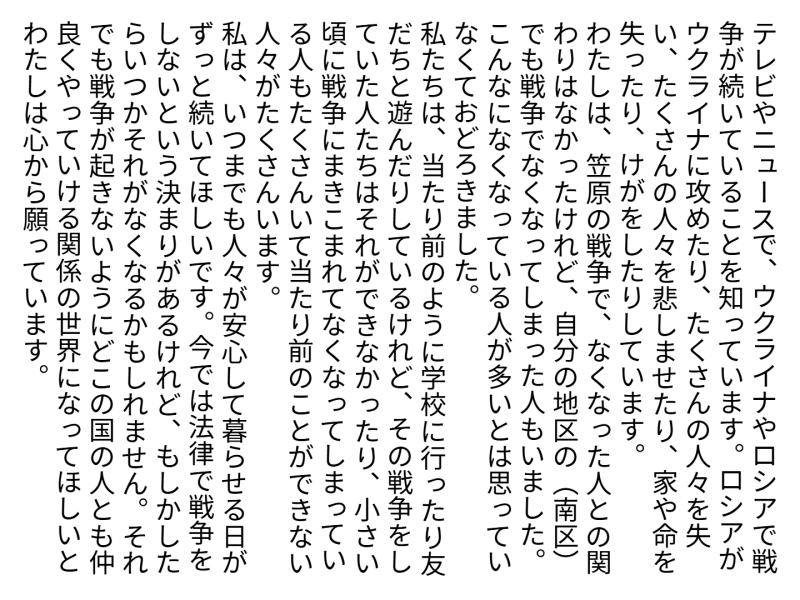 テレビやニュースで、ウクライナやロシアで戦
争が続いていることを知っています。ロシアが
ウクライナに攻めたり、たくさんの人々を失
い、たくさんの人々を悲しませたり、家や命を
失ったり、けがをしたりしています。
わたしは、笠原の戦争で、なくなった人との関
わりはなかったけれど、自分の地区の（南区）
でも戦争でなくなってしまった人もいました。
こんなになくなっている人が多いとは思ってい
なくておどろきました。
私たちは、当たり前のように学校に行ったり友
だちと遊んだりしているけれど、その戦争をし
ていた人たちはそれができなかったり、小さい
頃に戦争にまきこまれてなくなってしまってい
る人もたくさんいて当たり前のことができない
人々がたくさんいます。
私は、いつまでも人々が安心して暮らせる日が
ずっと続いてほしいです。今では法律で戦争を
しないという決まりがあるけれど、もしかした
らいつかそれがなくなるかもしれません。それ
でも戦争が起きないようにどこの国の人とも仲
良くやっていける関係の世界になってほしいと
わたしは心から願っています。